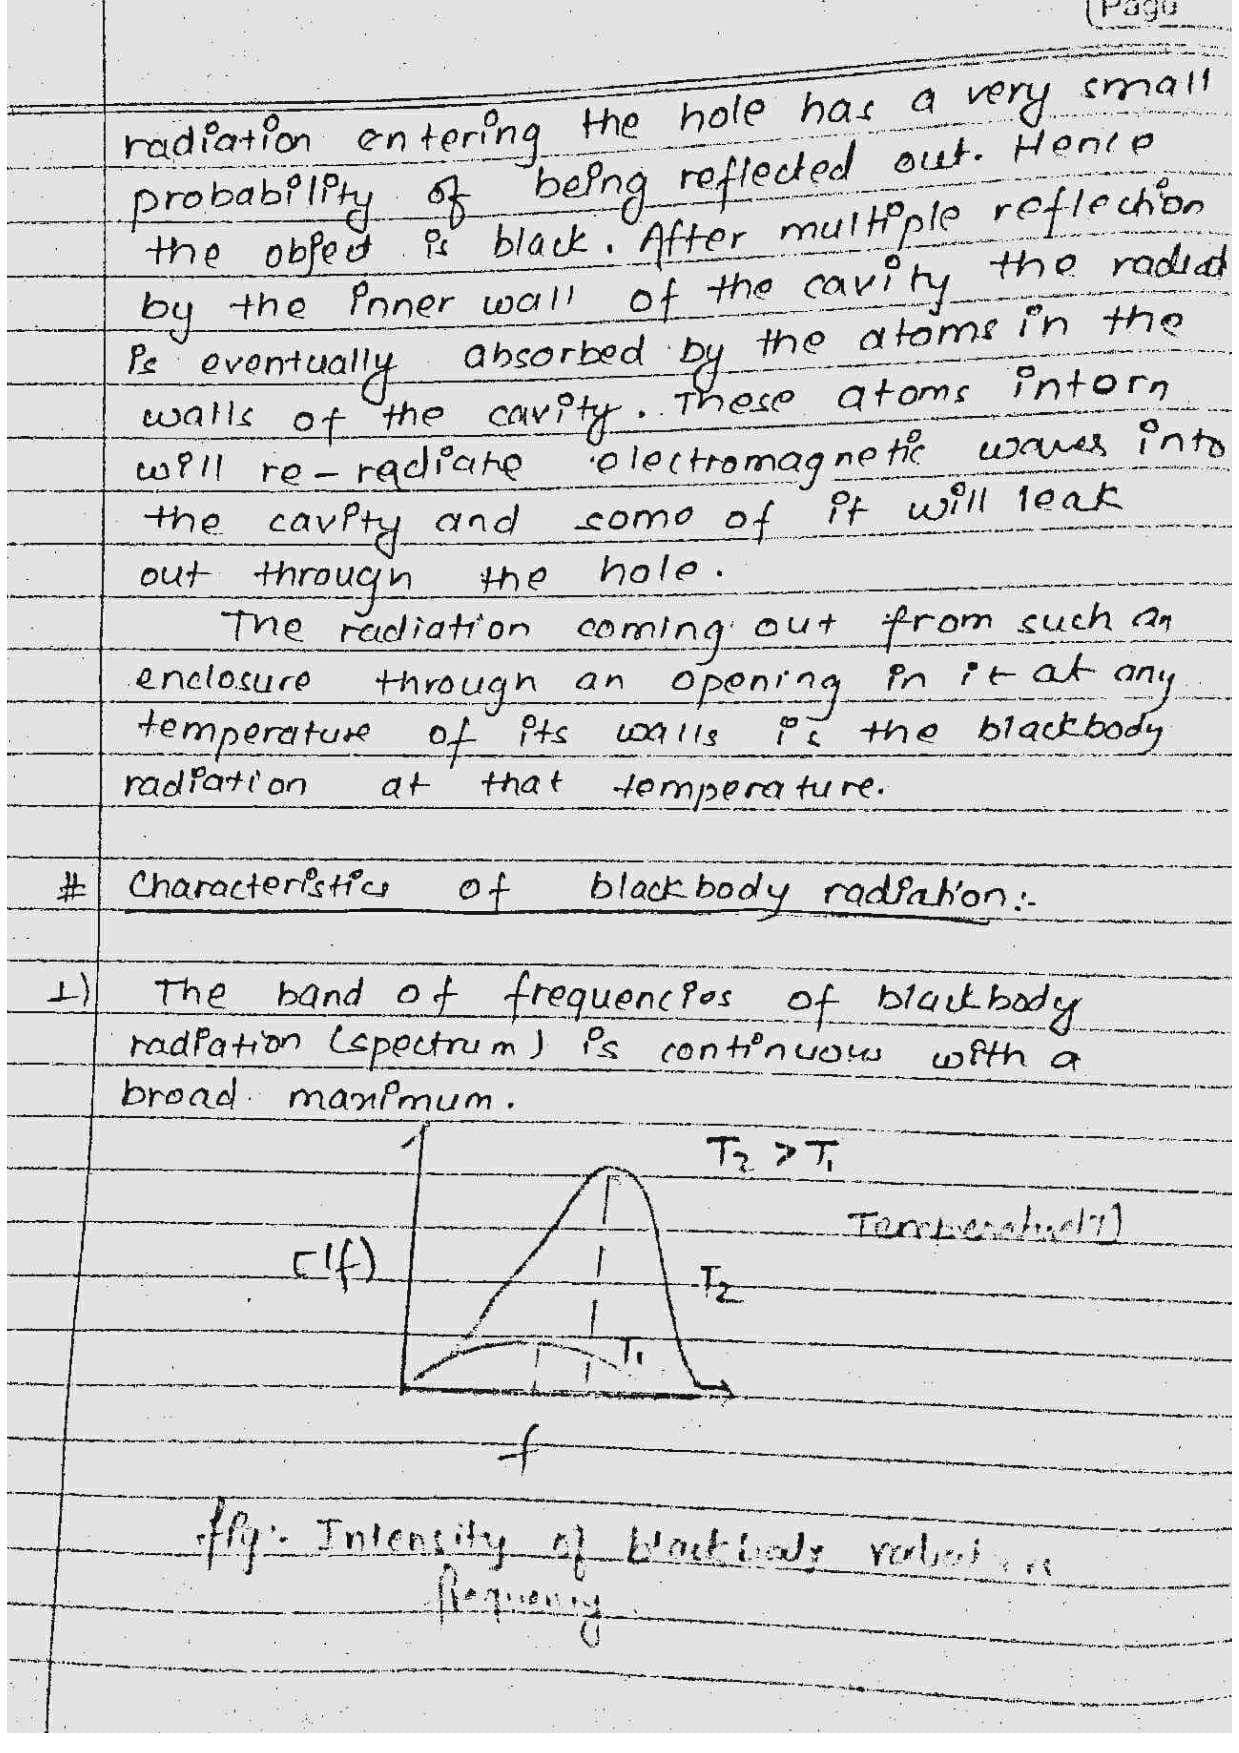 Page
radiation entering the hole has a very small
probability of being reflected out. Hence
the object is black. After multiple reflection
by the inner wall of the cavity the radiat
is eventually absorbed by the atoms in the
walls of the cavity. These atoms intorn
will re-radiate electromagnetic waves into
the cavity and some of it will leak
out through the hole.
The radiation coming out from such an
enclosure through an opening in it at any
temperature of its walls is the blackbody
radiation at that temperature.
# Characteristics of blackbody radiation:-
1) The band of frequencies of blackbody
radiation (spectrum) is continuous with a
broad maximum.
T₂ > T₁
Temperature(T)
I(f)
T₂
T₁
f
fig:- Intensity of blackbody
frequency